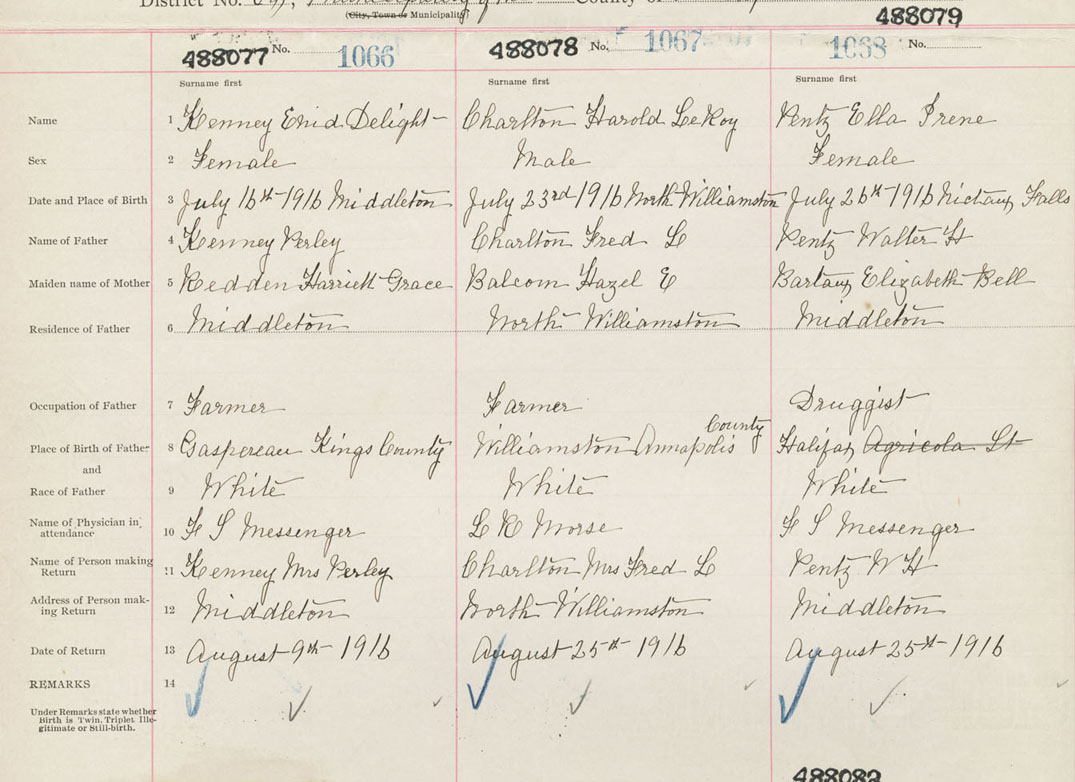 District No.
County of
(City, Town or Municipality)
488079
488077 No. 1066 488078 No. 1067 1068 No.
Surname first Surname first Surname first
Name 1 Kenney Enid Delight Charlton Harold LeRoy Pentz Ella Irene
Sex 2 Female Male Female
Date and Place of Birth 3 July 16th 1916 Middleton July 23rd 1916 North Williamston July 26th 1916 Nictaux Falls
Name of Father 4 Kenney Perley Charlton Fred L Pentz Walter H
Maiden name of Mother 5 Redden Harriett Grace Balcom Hazel E Elizabeth Bell
Residence of Father 6 Middleton North Williamston Middleton
Occupation of Father 7 Farmer Farmer Druggist
County
Place of Birth of Father 8 Gaspereau Kings County Williamston Annapolis Halifax Agricola St
and
Race of Father 9 White White White
Name of Physician in
attendance 10 F S Messenger L R Morse F S Messenger
Name of Person making
Return 11 Kenney Mrs Perley Charlton Mrs Fred L Pentz W H
Address of Person mak-
ing Return 12 Middleton North Williamston Middleton
Date of Return 13 August 9th 1916 August 25th 1916 August 25th 1916
REMARKS 14
Under Remarks state whether
Birth is Twin, Triplet Ille-
gitimate or Still-birth.
488082